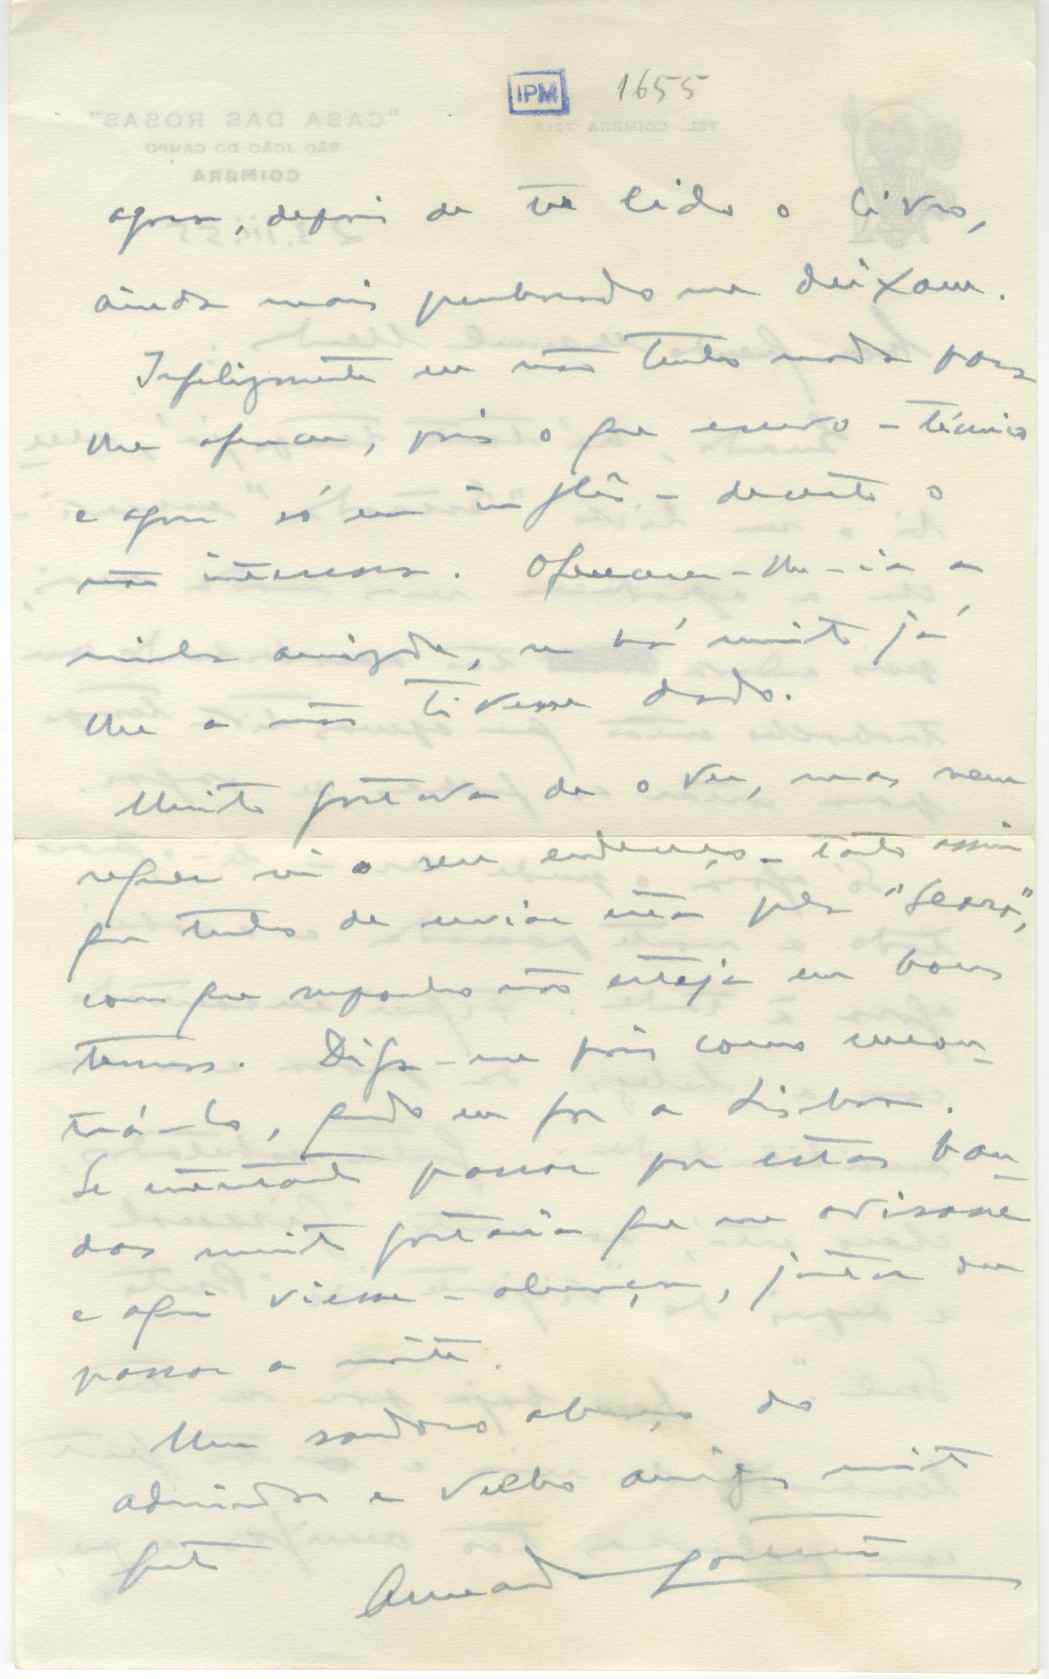 IPM 1655
agora, depois de ter lido o livro,
ainda mais penhorado me deixam.
Infelizmente eu não tenho nada para
lhe oferecer, pois o que escrevo - técnico
e agora só em inglês - decerto o
não interessa. Oferecer-lhe-ia a
minha amizade, se há muito já
lhe a não tivesse dado.
Muito gostava de o ver, mas nem
sequer vi o seu endereço - tanto assim
que tenho de enviar esta pela "Seara",
com que suponho não esteja em bons
termos. Diga-me pois como encon-
trá-lo, quando eu for a Lisboa.
Se entretanto passar por estas ban-
das muito gostaria que me avisasse
e aqui viesse - almoçar, jantar ou
passar a noite.
Um saudoso abraço do
admirador e velho amigo muito
grato
Armando